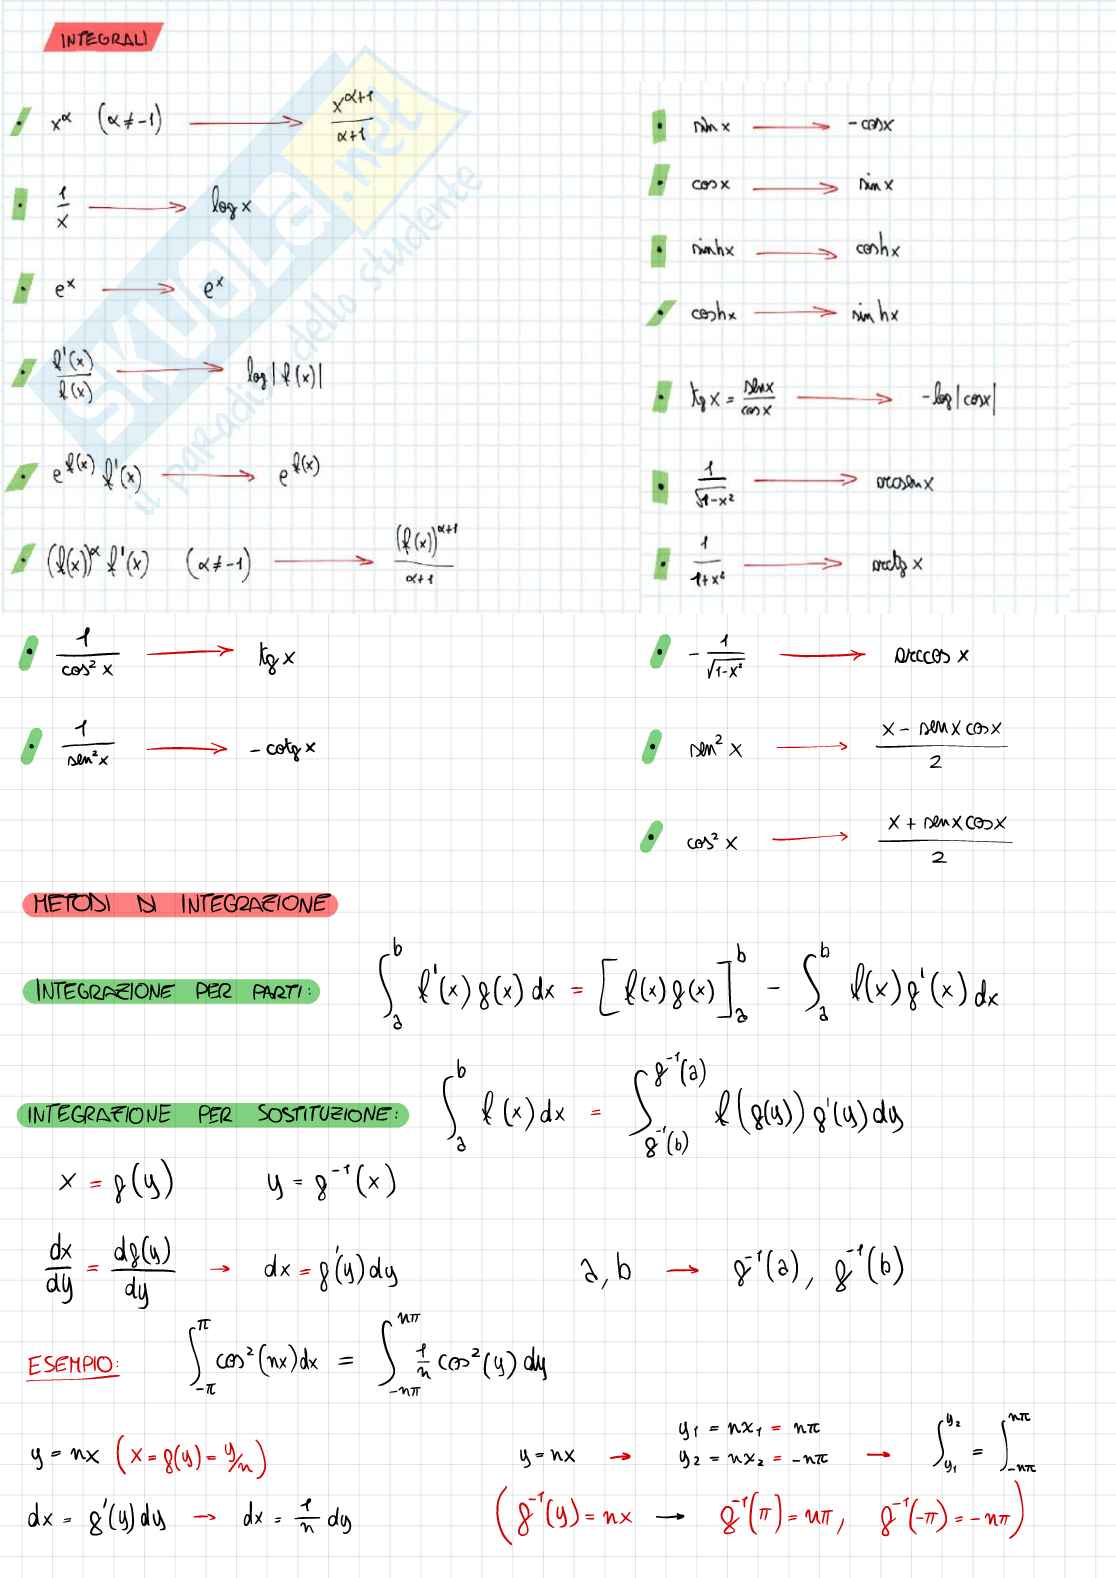 INTEGRALI
x^α (α≠-1) → x^(α+1)/(α+1)
1/x → log x
e^x → e^x
f'(x)/f(x) → log|f(x)|
e^f(x) f'(x) → e^f(x)
(f(x))^α f'(x) (α≠-1) → (f(x))^(α+1)/(α+1)
sin x → -cosx
cosx → sinx
sinhx → coshx
coshx → sinhx
tg x = senx/cosx → -log|cosx|
1/√(1-x²) → arcsenx
1/(1+x²) → arctg x
SKUOLA.net
il paradiso dello studente
1/cos² x → tg x
1/sen² x → -cotg x
-1/√(1-x²) → arccos x
sen² x → (x - senx cosx)/2
cos² x → (x + senx cosx)/2
METODI DI INTEGRAZIONE
INTEGRAZIONE PER PARTI: ∫_a^b f'(x) g(x) dx = [f(x) g(x)]_a^b - ∫_a^b f(x) g'(x) dx
INTEGRAZIONE PER SOSTITUZIONE: ∫_a^b f(x) dx = ∫_{g⁻¹(b)}^{g⁻¹(a)} f(g(y)) g'(y) dy
x = g(y) y = g⁻¹(x)
dx/dy = dg(y)/dy → dx = g'(y) dy a, b → g⁻¹(a), g⁻¹(b)
ESEMPIO: ∫_{-π}^{π} cos²(nx) dx = ∫_{-nπ}^{nπ} 1/n cos²(y) dy
y = nx (x = g(y) = y/n)
dx = g'(y) dy → dx = 1/n dy
y = nx → y₁ = nx₁ = nπ
y₂ = nx₂ = -nπ → ∫_{y₁}^{y₂} = ∫_{-nπ}^{nπ}
(g⁻¹(y) = nx → g⁻¹(π) = nπ, g⁻¹(-π) = -nπ)